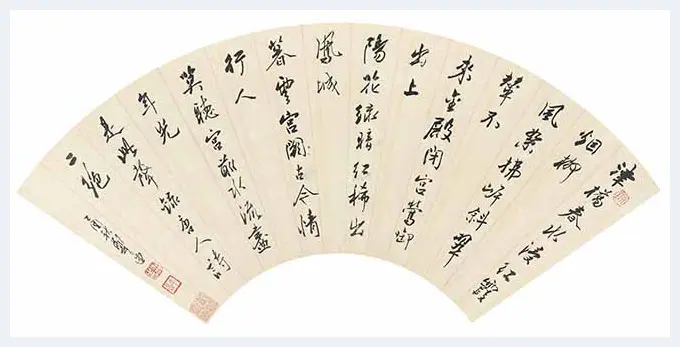 津橋春水浸紅霞
烟柳
風絲拂岸斜翠
輦不
來金殿閉宮鶯啣
出上
陽花綠暗紅稀出
鳳城
暮雲宮闕古今情
行人
莫聽宮前水流盡
年光
是此聲錄唐人詩
二絕